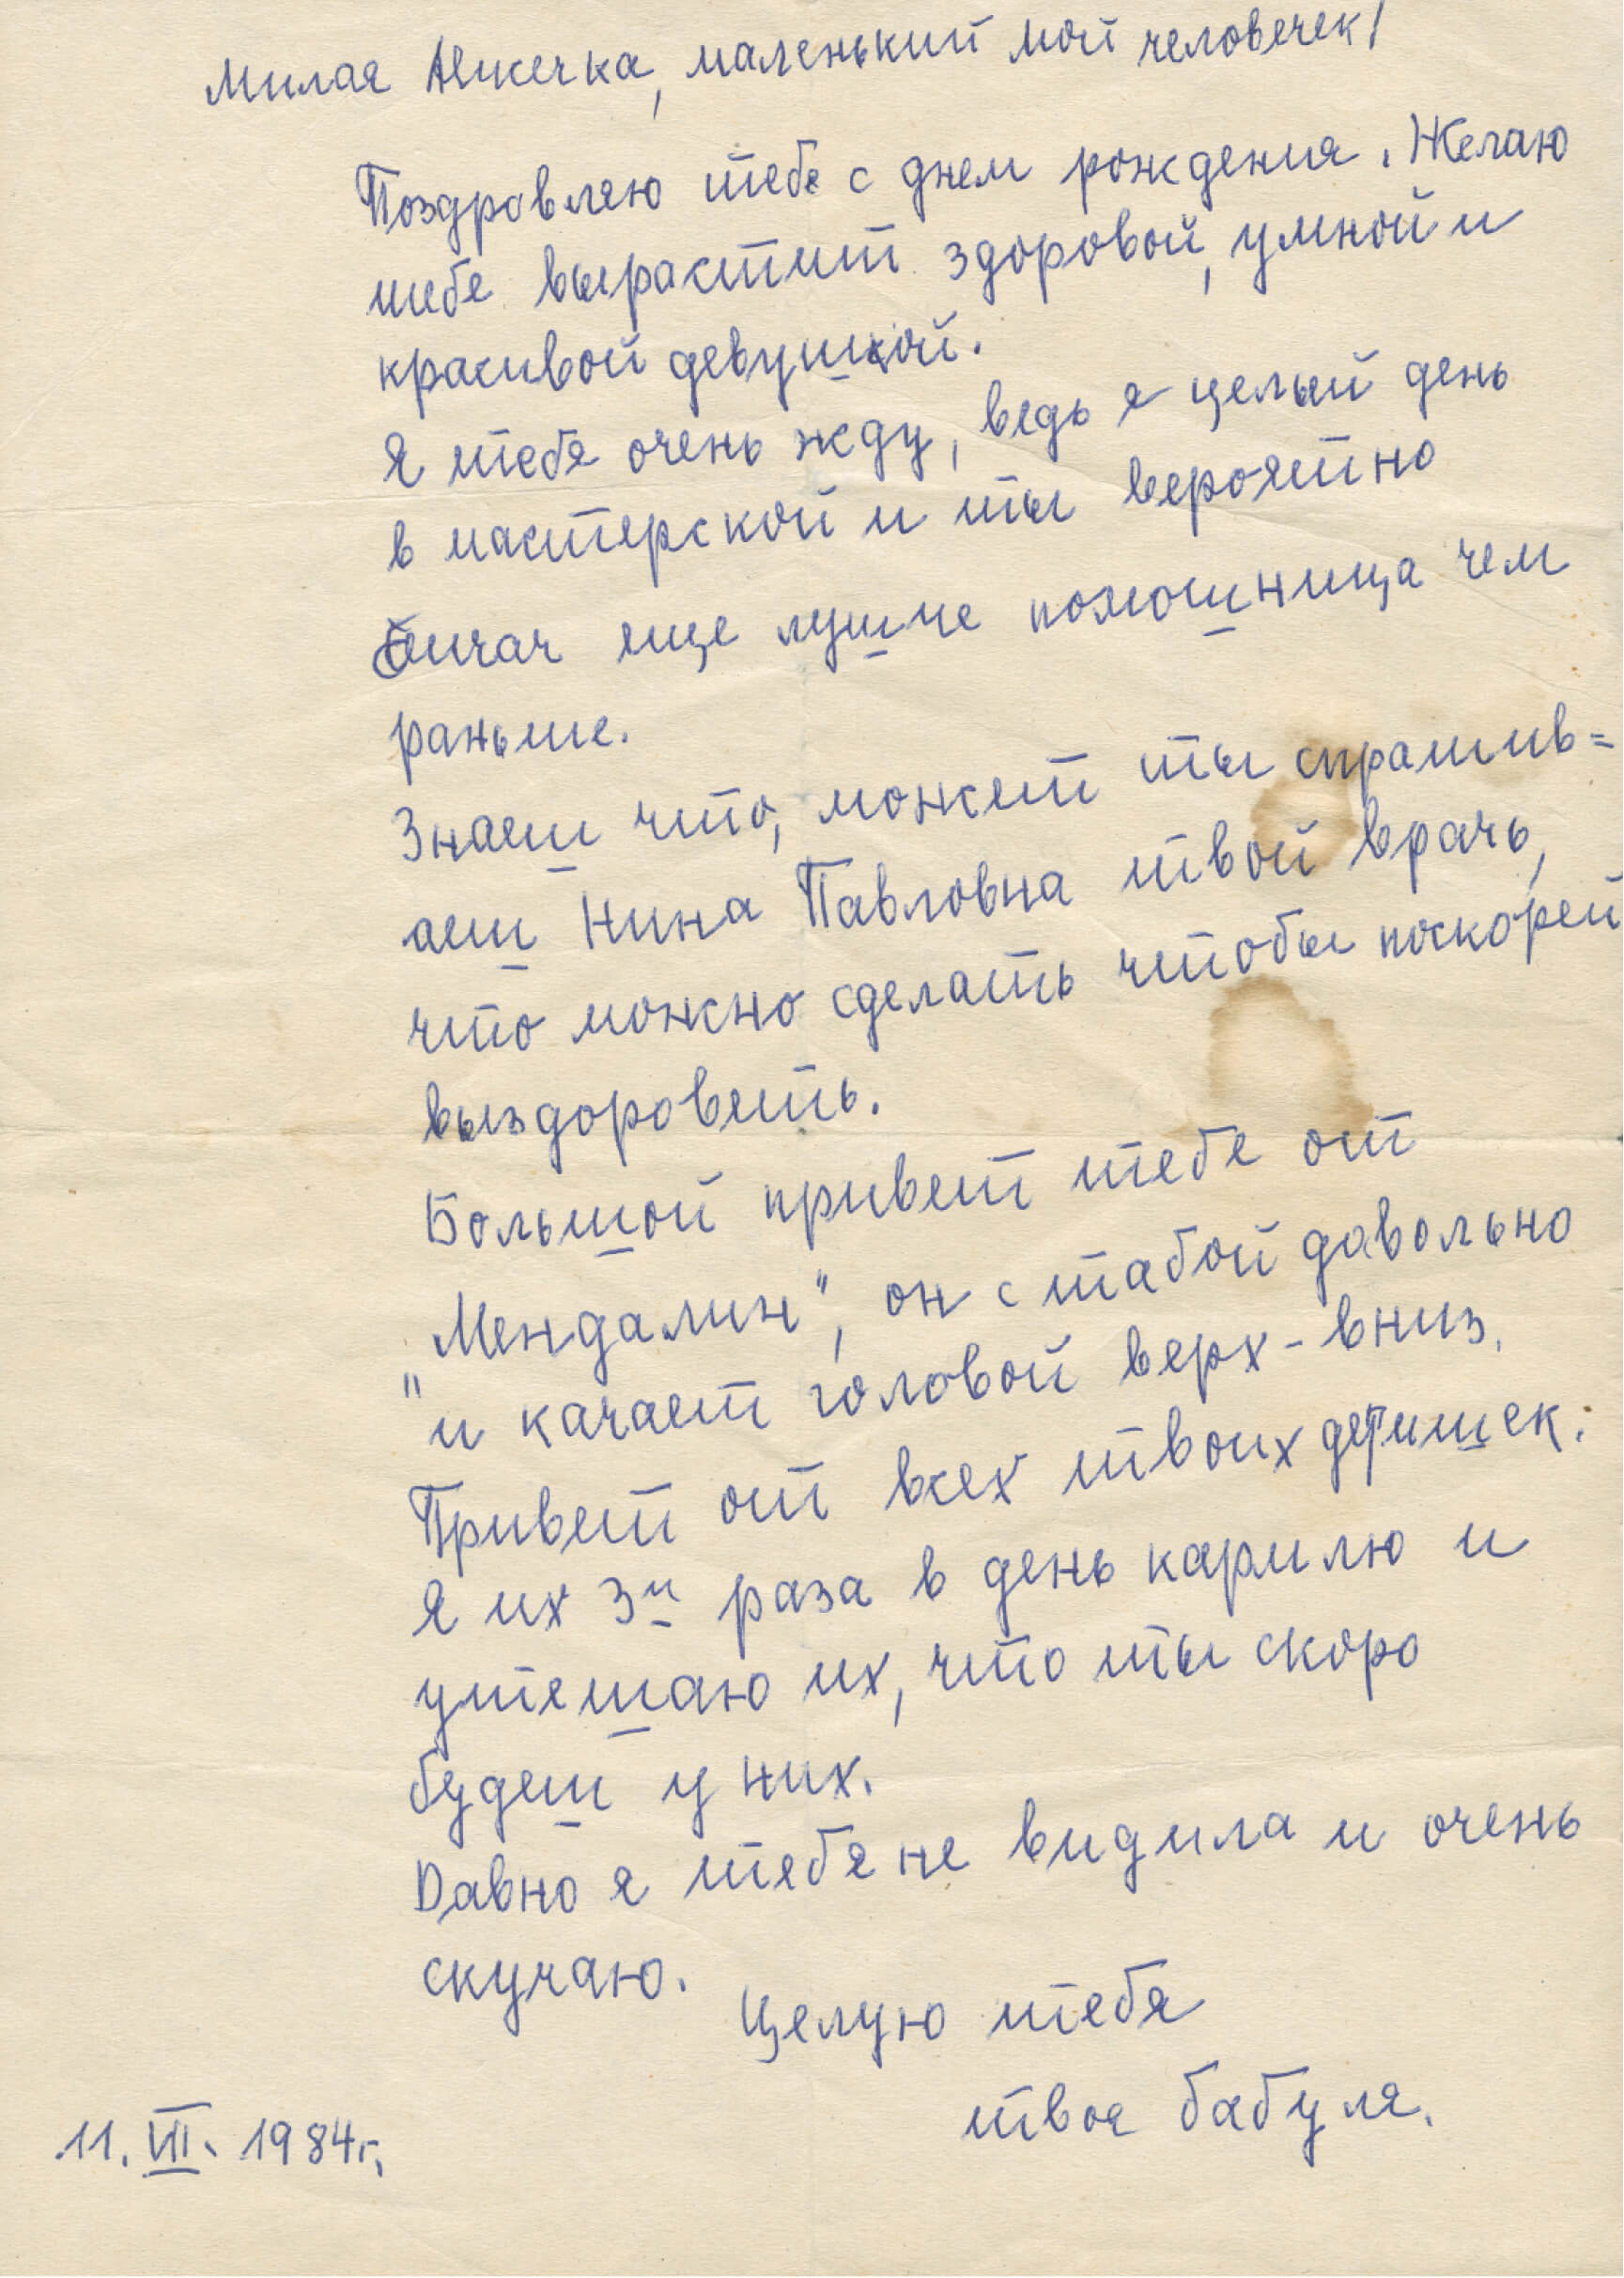 Милая Аничка, маленький мой человечек!
Поздровляю тебе с днем рождения. Желаю
тебе вырастит здоровой, умной и
красивой девушкой.
Я тебя очень жду, ведь я целый день
в мастерской и ты вероятно
еще лушче помошница чем
раньше.
Знаеш что, может ты спрашив=
аеш Нина Павловна твой врачь,
что можно сделать чтобы поскорей
выздороветь.
Большой привет тебе от
"Мендалин", он с табой давольно
и качает головой верх-вниз.
Привет от всех твоих детишек.
Я их 3и раза в день кармлю и
утешаю их, что ты скоро
будеш у них.
Давно я тебя не видила и очень
скучаю.
Целую тебя
твоя бабуля.
11. VII. 1984г.